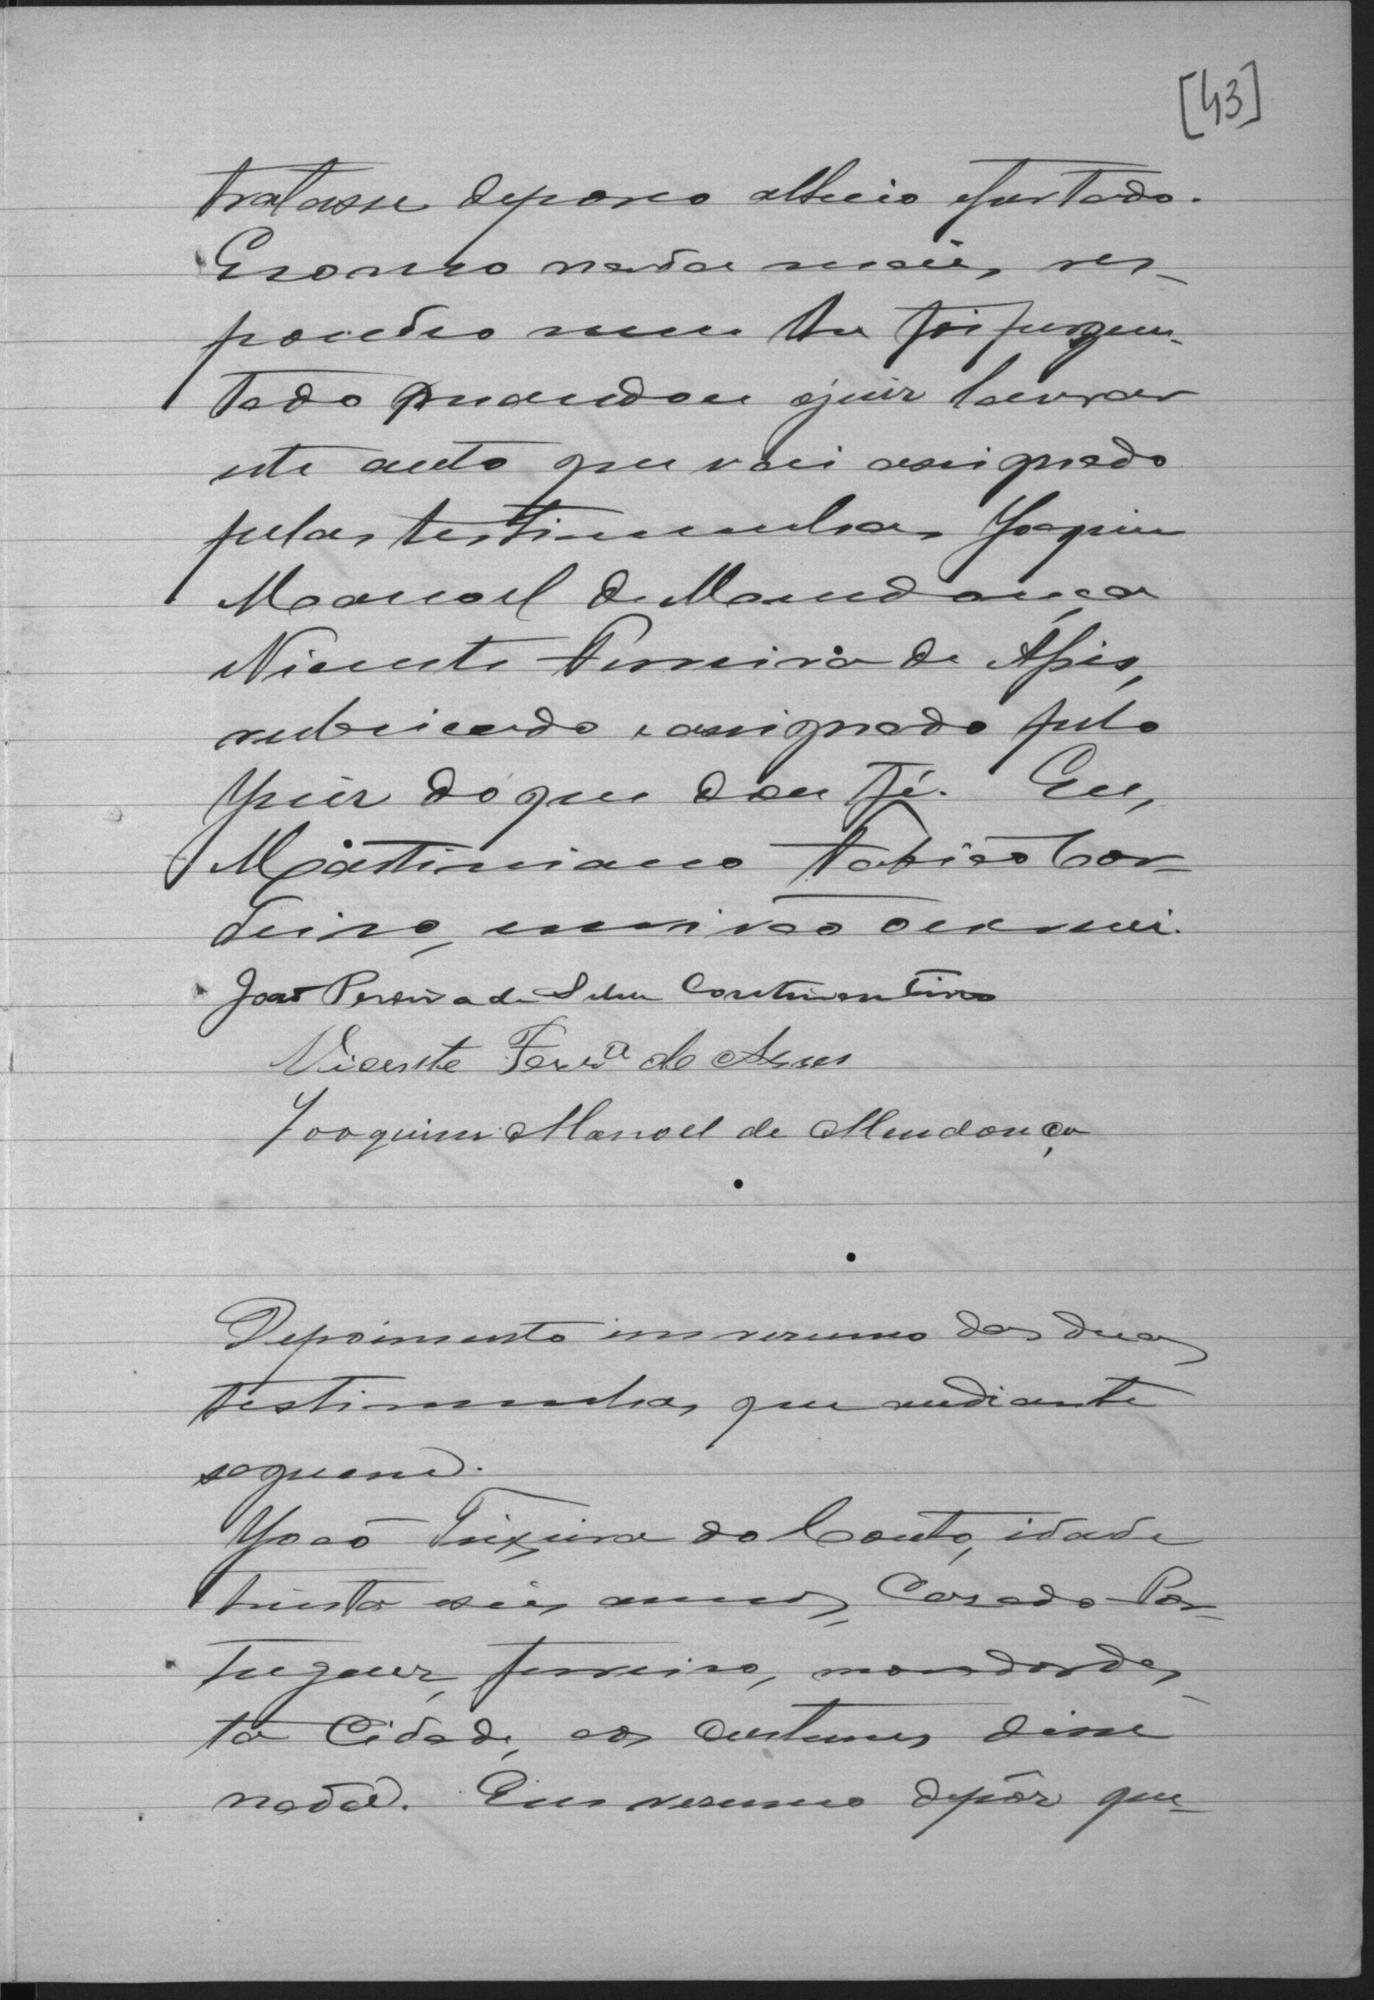 [43]
tratasse de porco alheio e furtado.
E como nada mais res-
pondeo nem lhe foi pergun-
tado mandou o juiz lavrar
este auto que vai assignado
pelas testimunhas Joaquim
Manoel de Mendonça
Vicente Ferreira de Assis,
rubricado e assignado pelo
Juiz do que dou fé. Eu,
Martiniano Fabião Cor-
deiro, escrivão o escrevi.
João Pereira da Silva Continentino
Vicente Ferrª de Assis
Joaquim Manoel de Mendonça
Depoimento em resumo das duas
testimunhas que adiante
seguem.
João Teixeira do Couto, idade
trinta e seis annos, Casado Por-
tuguez, ferreiro, morador des-
ta Cidade, aos custumes disse
nada. Em resumo depôz que